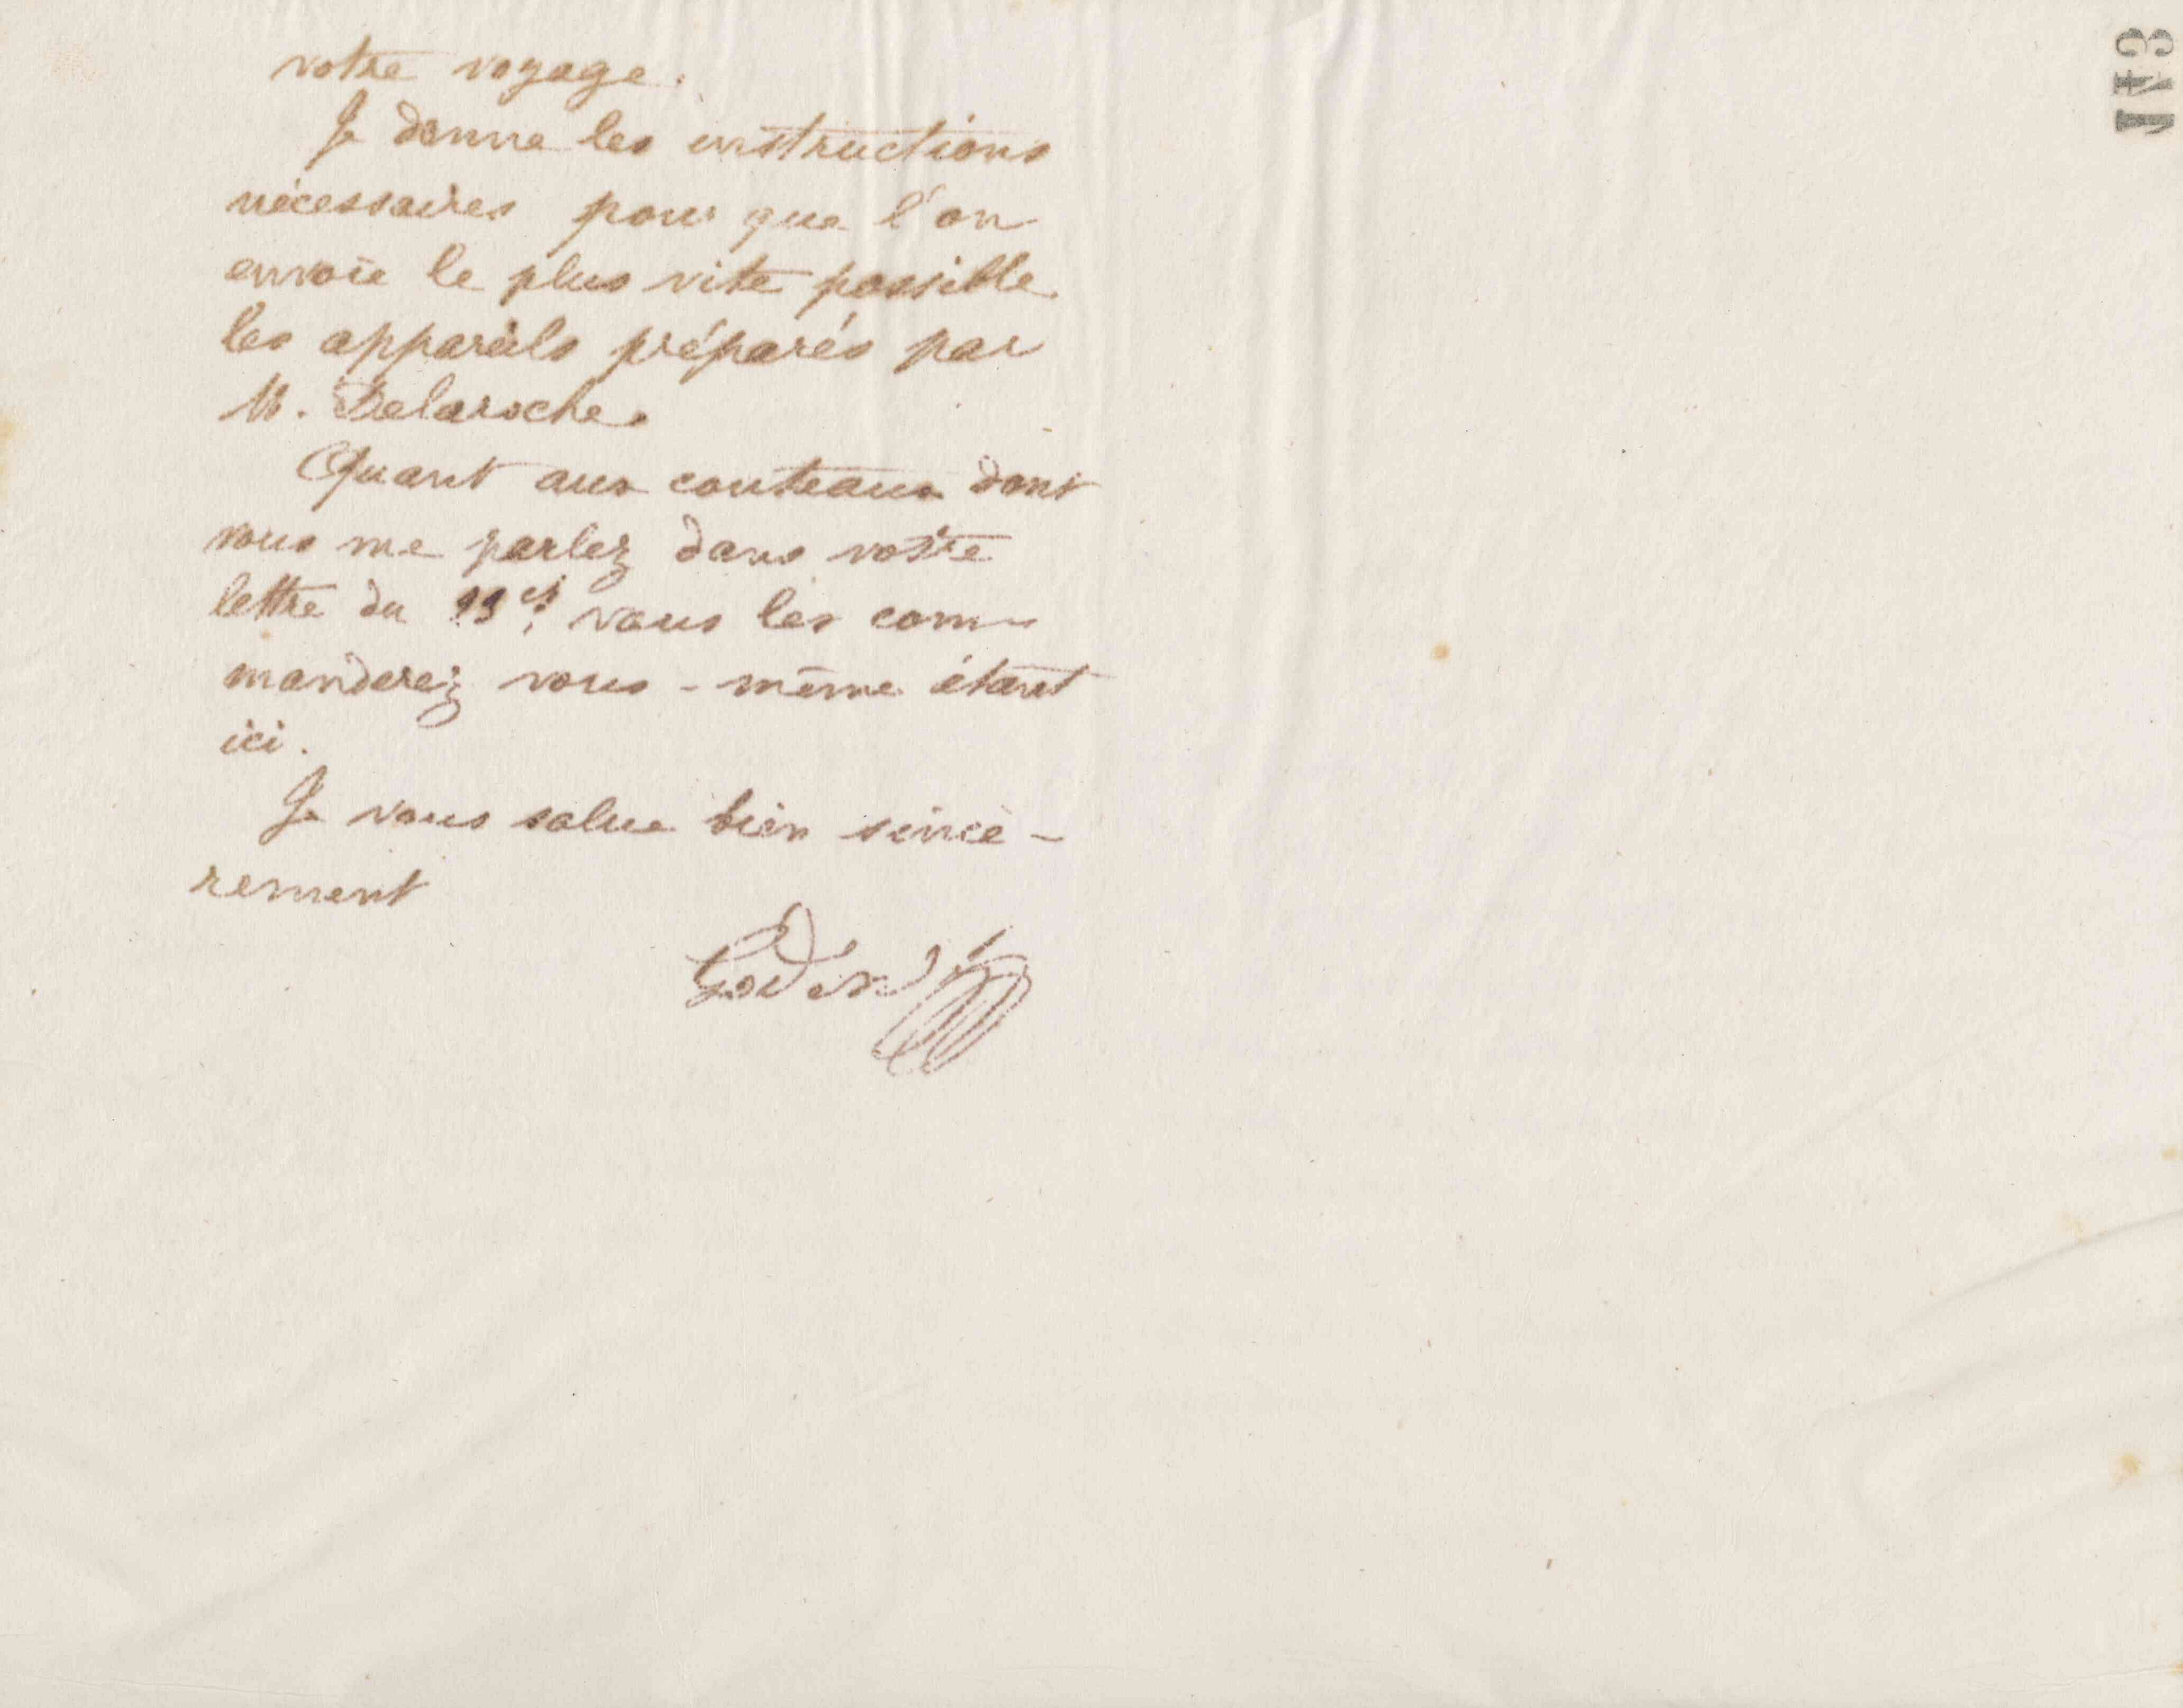 votre voyage.
Je donne les instructions
nécessaires pour que l'on
envoie le plus vite possible
les appareils préparés par
M. Delaroche.
Quant aux couteaux dont
vous me parlez dans votre
lettre du vous les com-
manderez vous-même étant
ici.
Je vous salue bien sincè-
rement
Godin